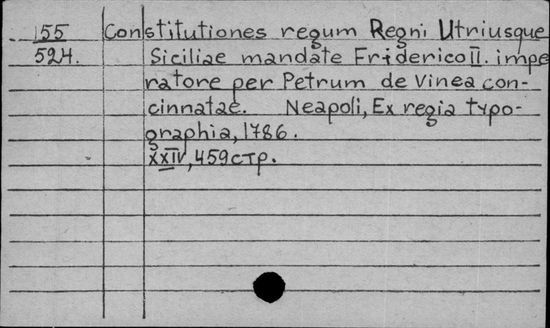 155 Constitutiones regum Regni Utriusque
524. Siciliae mandate Friderico II. impe
ratore per Petrum de Vinea con-
cinnatae. Neapoli, Ex regia typo-
graphia, 1786.
XXIV, 459 стр.